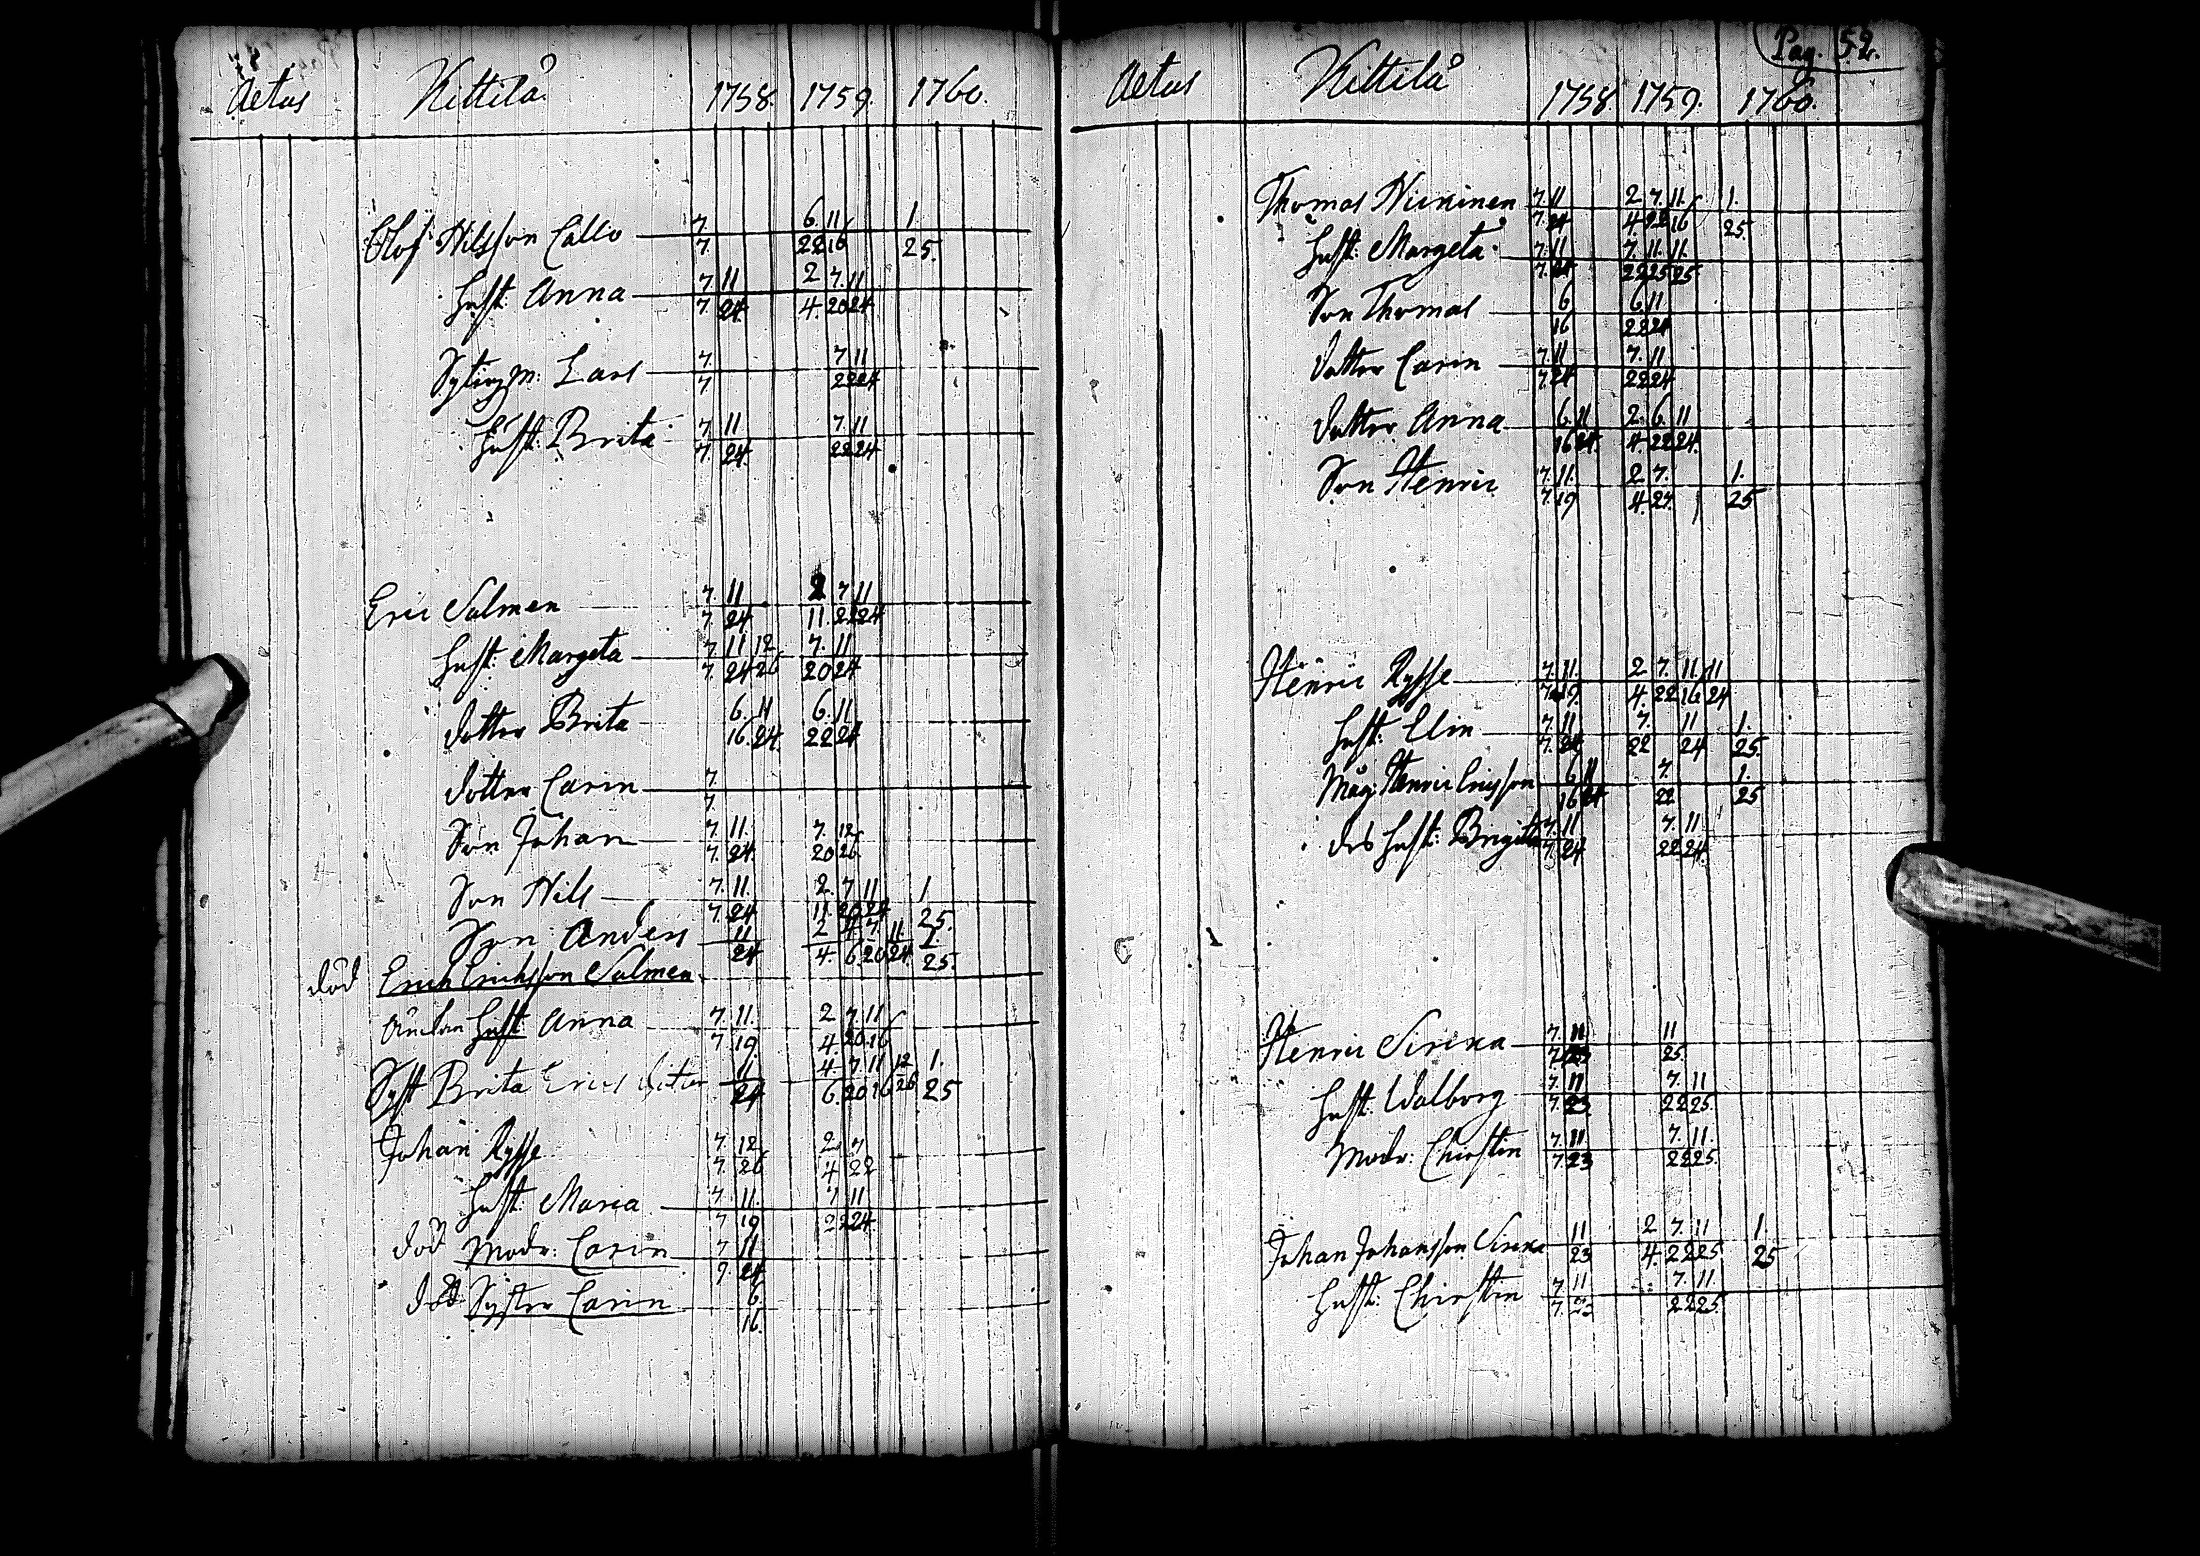 Aetas Kittilä 1758. 1759. 1760.
Olof Nilsson Callo 7. 6 11 1.
7 22 16 25.
hust. Anna 7. 11 2 7. 11
7. 24. 4. 20 24
Lars 7. 7 11
7 22 24
hust. Brita 7. 11 7. 11
7. 24. 22 24
Eric Salmen 7. 11 2 7 11
7. 24 11. 22 24
hust. Margeta 7 11 12 7. 11
7. 24 26 20 24
dotter Brita 6. 11 6. 11
16. 24. 22 24
dotter Carin 7.
7.
Son Johan 7. 11. 7. 12
7. 24. 20 26
Son Nils 7. 11. 2. 7 11 1
7. 24 11. 20 24 25.
Son Anders 11 2 4 7. 11 1.
24 4. 6. 20 24 25.
död Erich Erichsson Salmen
Änckan hust. Anna 7. 11. 2 7. 11
7. 19. 4. 20. 16
Syst Brita Erics 11. 4. 7 11 12 1.
24 6. 20 16 26 25
Johan Rysse 7. 12 2. 7
7. 26 4 22
hust. Maria 7. 11. 7 11
7 19 22 24
död Modr. Carin 7 11
7. 24
död Syster Carin 6.
16.
Pag. 52.
Aetas Kittilä 1758. 1759. 1760.
Thomas Nickinen 7. 11 2 7. 11. 1.
7. 24 4. 22 16 25.
hust. Margeta 7. 11 7. 11. 11.
7. 24 22 25 25
Son Thomas 6 6. 11
16 22 24
dotter Carin 7. 11 7. 11
7. 24 22 24
dotter Anna 6. 11 2. 6. 11
16 24. 4. 22 24.
Son Henric 7. 11. 2 7. 1.
7. 19 4. 27. 25
Henric Rysse 7. 11. 2 7. 11. 11
7. 19. 4. 22 16 24
hust. Elin 7. 11 7. 11 1.
7. 24 22 24 25.
Måg. Henric Ericsson 6 11 7. 1.
16 24 22 25
des hust. Brigita 7. 11 7. 11
7. 24 22 24.
Henric Sirkka 7. 11 11
7. 23 25.
hust. Walborg 7. 11 7. 11
7. 23 22 25.
Modr. Chirstin 7. 11 7. 11.
7. 23 22 25.
Johan Johansson 11 2 7. 11 1.
23 4. 22 25 25
hust. Chirstin 7. 11 7. 11.
7. 23 22 25